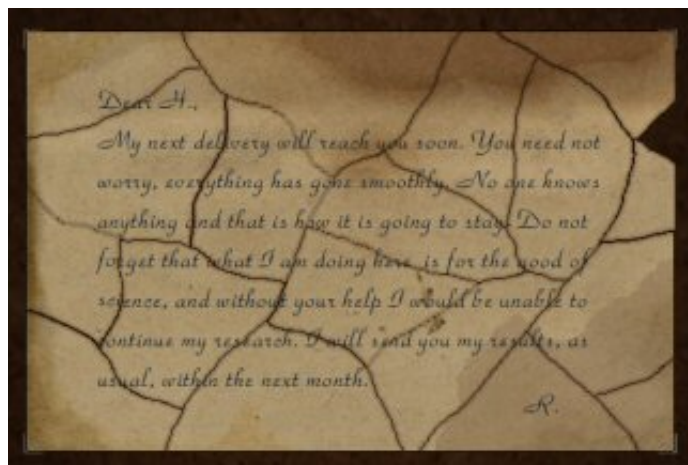 Dear H.,
My next delivery will reach you soon. You need not
worry, everything has gone smoothly. No one knows
anything and that is how it is going to stay. Do not
forget that what I am doing here, is for the good of
science, and without your help I would be unable to
continue my research. I will send you my results, as
usual, within the next month.
R.